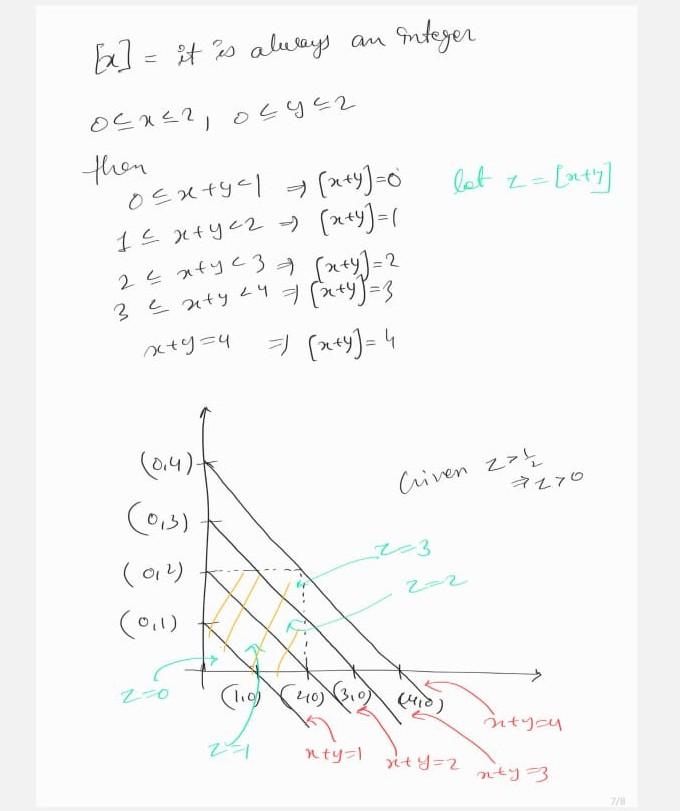 [x] = it is always an integer
0 ≤ x ≤ 2, 0 ≤ y ≤ 2
then
0 ≤ x+y < 1 ⇒ [x+y]=0 let z = [x+y]
1 ≤ x+y < 2 ⇒ [x+y]=1
2 ≤ x+y < 3 ⇒ [x+y]=2
3 ≤ x+y < 4 ⇒ [x+y]=3
x+y=4 ⇒ [x+y]=4
(0,4)
Given z > 1/2
⇒ z > 0
(0,3)
z=3
(0,2)
z=2
(0,1)
z=0
(1,0) (2,0) (3,0) (4,0)
x+y=4
z=1
x+y=1 x+y=2 x+y=3
7/8